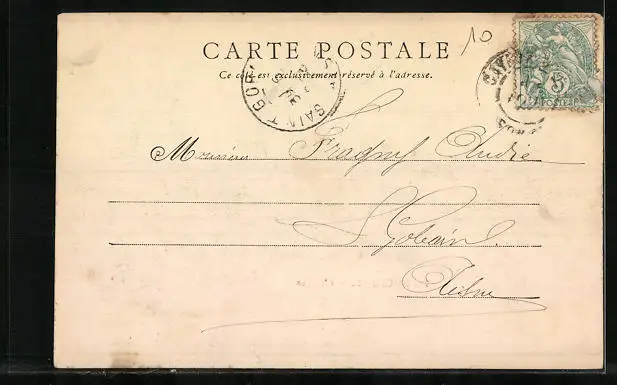 10
CARTE POSTALE
Ce côté est exclusivement réservé à l'adresse.
SAINT GOB
5
POSTES
Monsieur Fragny André
St Gobain.
Aisne